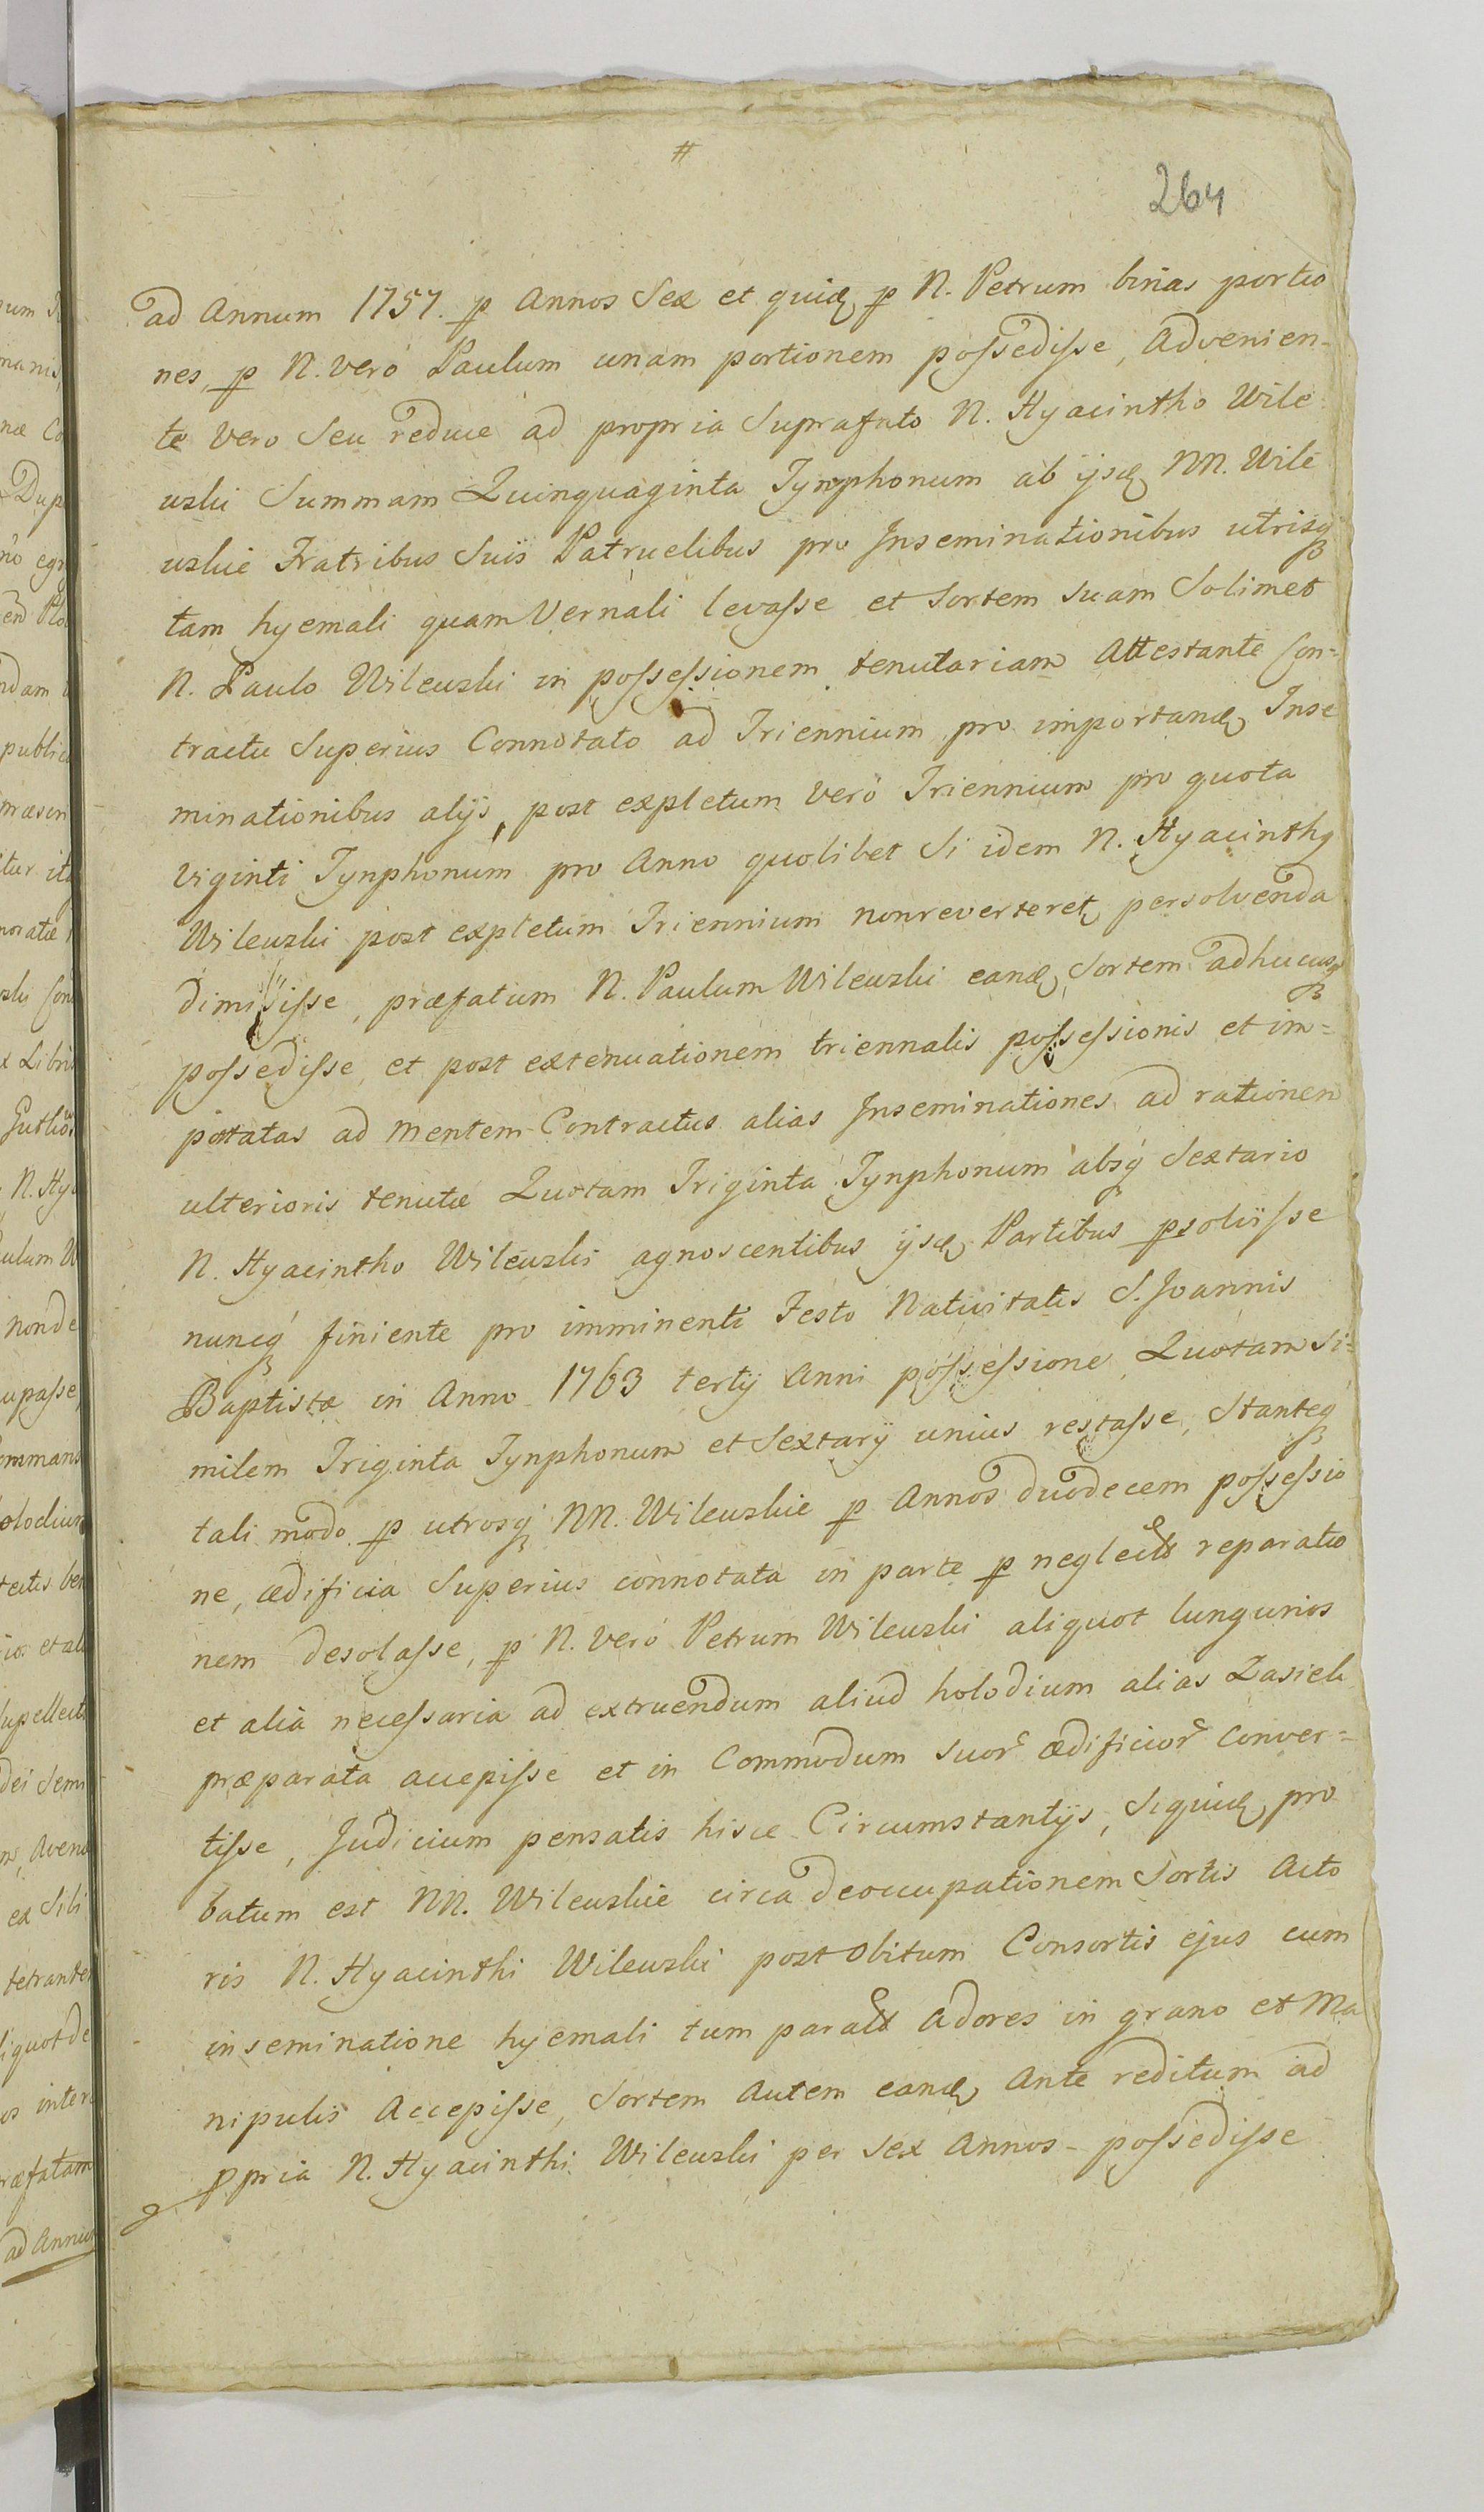 #
264
ad Annum 1757. p Annos Sex et quidē p N. Petrum binas portio
nes, p N. vero Paulum unam portionem possedisse, Advenien-
te vero seu reduce ad propria Suprafato N. Hyacintho Wile
wski Summam Quinquaginta Tynphonum ab ijsdē NN. Wile
wskie Fratribus Suis Patruelibus pro Inseminationibus utrisq
tam hyemali quam Vernali levasse et Sortem suam Solimet
N. Paulo Wilewski in possessionem tenutariam Attestante Con=
tractu Superius Connotato ad Triennium pro importandē Inse
minationibus alijs, post expletum vero Triennium pro quota
viginti Tynphonum pro Anno quolibet Si idem N. Hyacinthq
Wilewski post expletum Triennium nonreverteretq persolvenda
dimisisse, præfatum N. Paulum Wilewski eandē Sortem adhucusq
possedisse, et post extenuationem triennalis possessionis et im=
portatas ad mentem Contractus alias Inseminationes ad rationem
ulterioris tenutæ Quotam Triginta Tynphonum absq Sextario
N. Hyacintho Wilewski agnoscentibus ijsdē Partibus psolvisse
nuncq finiente pro imminenti Festo Nativitatis S. Joannis
Baptistæ in Anno 1763 tertij Anni possessione Quotam si=
milem Triginta Tynphonum et Sextarij unius restasse, Stanteq
tali modo p utrosq NN. Wilewskie p Annos duodecem possessio
ne, ædificia Superius connotata in parte p neglectā reparatio
nem desolasse, p N. vero Petrum Wilewski aliquot lungurios
et alia necessaria ad extruendum aliud holodium alias Zasiek
præparata accepisse et in Commodum suor ædificior conver=
tisse, Judicium pensatis hisce Circumstantijs, Siquidē pro
batum est NN. Wilewskie circa deoccupationem Sortis Acto
ris N. Hyacinthi Wilewski post Obitum Consortis ejus cum
inseminatione hyemali tum paratā adores in grano et Ma
nipulis Accepisse, Sortem Autem eandē Ante reditum ad
ppria N. Hyacinthi Wilewski per sex Annos - possedisse